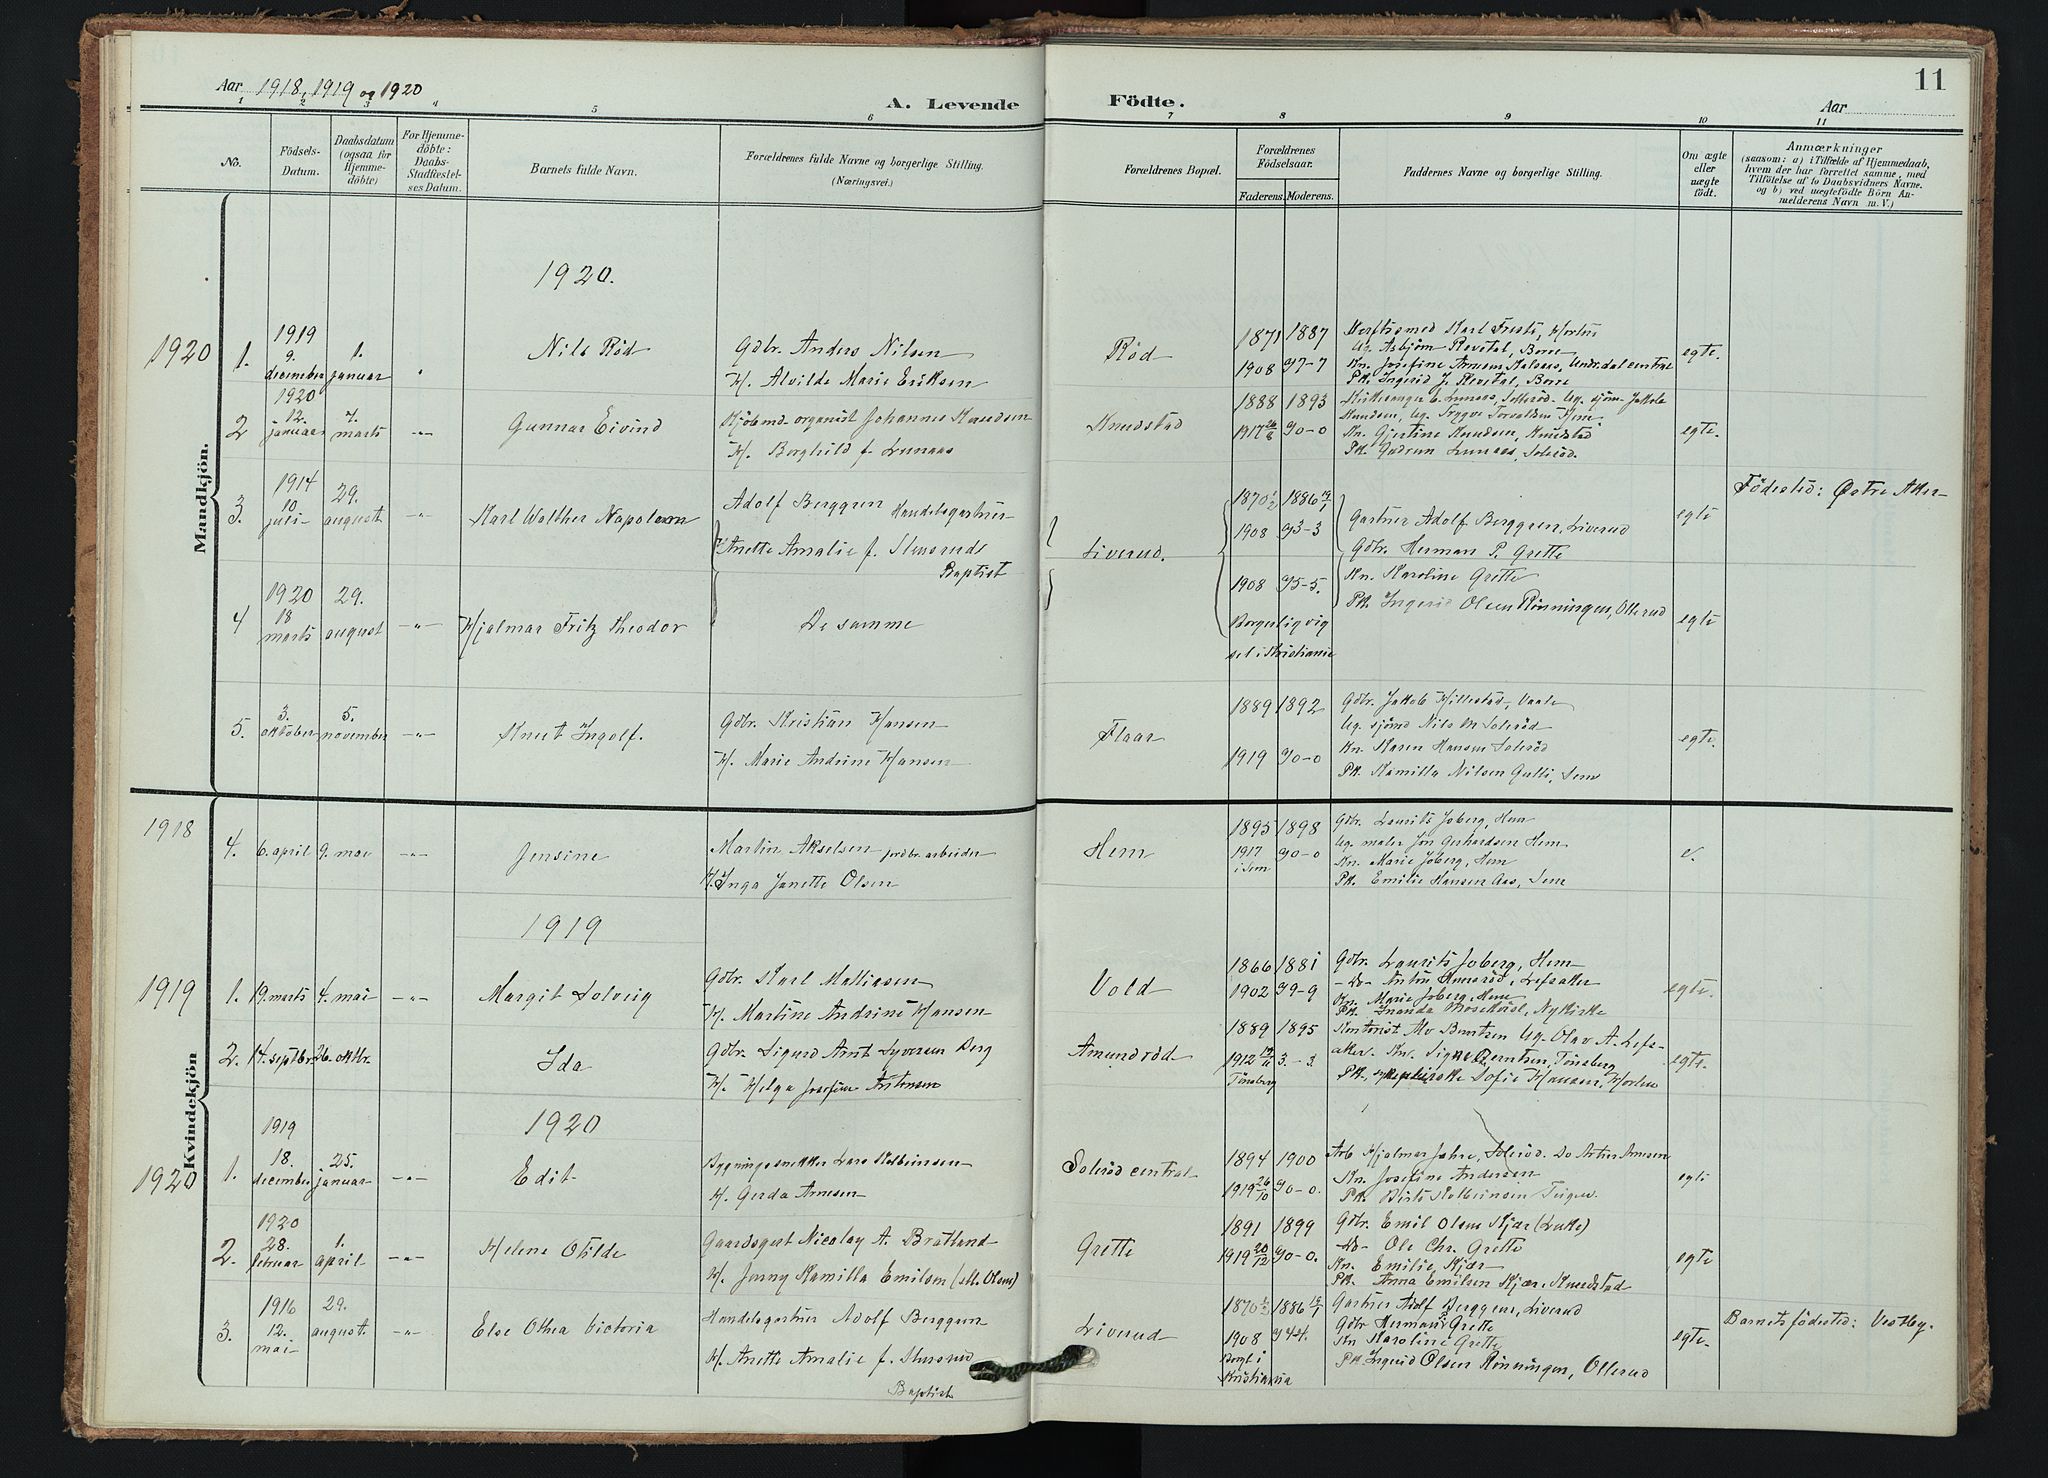 Aar 1918, 1919 og 1920
A. Levende Födte.
Aar
11
1 2 3 5 6 7 8 9 10 11
No.
Födsels-Datum.
Daabsdatum (ogsaa for Hjemme-döbte)
For Hjemme-döbte: Daabs-Stadfæstel-ses Datum.
Barnets fulde Navn.
Forældrenes fulde Navne og borgerlige Stilling.
(Næringsvei.)
Forældrenes Bopæl.
Forældrenes Födselsaar.
Faderens. Moderens.
Faddernes Navne og borgerlige Stilling.
Om ægte eller uægte födt.
Anmærkninger
(saasom: a) i Tilfælde af Hjemmedaab, hvem der har forrettet samme, med Tilföielse af to Daabsvidners Navne. og b) ved uægtefödte Börn An-melderens Navn m. V.)
Mandkjön.
1920.
1920 1. 1919 9. december 1. januar
Nils Rød
Gdbr. Anders Nilsen
H. Alvilde Marie Eriksen
Rød
1871 1887
1908 97-7
Karl Freste, Horten
Ug. Asbjørn Revetal, Borre
Kn. Josefine Arnesen
Pk. Ingerid J. Revetal, Borre
egte.
2 1920 12. januar 7. marts -"-
Gunnar Eivind
Kjøbmd. organist Johannes Knudsen
H. Borghild f. Lunaas
Knudstad
1888 1893
1917 90-0
Kirkesanger Lunaas, Solerød. Ug. sjøm. Jakob
Knudsen, Ug. Trygve Torvaldsen Hem
Kn. Gjertine Knudsen, Knudstad
Pk. Gudrun Lunaas, Solerød.
egte.
3. 1914 10. juli 29. august -"-
Karl Walther Napoleon
Adolf Berggren Handelsgartner
Anette Amalie f. Slensrud
Baptist
Liverud.
1870 1/2 1886 19/1
1908 93-3
Gartner Adolf Berggren, Liverud
Gdbr. Herman P. Grette
egte
Födested: Østre Aker
4 1920 18 marts 29. august -"-
Hjalmar Fritz Theodor
De samme
1908 95-5.
Borgerlig vig
sel i Kristiania
Kn. Karoline Grette
Pk. Ingerid Olsen Rønningen, Ollerud
egte
5. 3. oktober 5. november -"-
Knut Ingolf.
Gdbr. Kristian Hansen
H. Marie Andrine Hansen
Flaar
1889 1892
1919 90-0
Gdbr. Jakob Hillestad, Vaale
Ug. sjømd Nils M. Solerød
Kn. Karen Hansen Solerød
Pk. Kamilla Nilsen Gulli, Sem
egte.
Kvindekjön
1918 4. 6. april 9. mai -"-
Jensine
Martin Akselsen jordbr. arbeider
H. Inga Janette Olsen
Hem
1895 1898
1917 90-0
i Sem
Gdbr. Laurits Joberg, Hem
Ug. maler Jon Gerhardsen Hem.
Kn. Marie Joberg, Hem
Pk. Emilie Hansen Aas, Sem
e.
1919
1919 1. 19. marts 4. mai -"-
Margit Solveig
Gdbr. Karl Mathiasen
H. Martine Andrine Hansen
Vold
1866 1881
1902 99-9
Gdbr. Laurits Joberg, Hem
-Do- Anton Hemsrød, Lefsaker
Kn. Marie Joberg, Hem
Pk. Mosekorsl, Nykirke
egte.
2. 14. septbr. 26. oktbr.
Ida
Gdbr. Sigurd Arnt Syversen Berg
H. Helga Josefine Antonsen
Amundrød
1889 1895
1912 3-3.
Tønsberg
Kontorist Alv Berntsen Ug. Olav A. Lefs-
aker. Kn. Signe Berntsen, Tønsberg
Pk. Sofie Hansen, Horten
egte.
1920
1920 1. 1919 18. december 25. januar -"-
Edit
Bygningssnekker Lars Kolbeinsen
H. Gerda Arnesen
Solerød central
1894 1900
1919 26/10 90-0.
Arb. Hjalmar Jahre, Solerød. Do Artur Arnesen
Kn. Josefine Andersen
Pk. Kolbeinsen
egte
2. 1920 28. februar 1. april -"-
Helene Otilde
Gaardsgut Nicolay A. Bratland
H. Jenny Kamilla Emilsen (ell. Olsen)
Grette
1891 1899
1919 20/12 90-0.
Gdbr. Emil Olsen Kjær (Lukke)
-Do- Ole Chr. Grette
Kn. Emilie Kjær
Pk. Anna Emilsen Kjær, Knudstad
egte
3. 1916 12. mai 29. august. -"-
Else Othea Victoria
Handelsgartner Adolf Berggren
H. Anette Amalie f. Slensrud
Baptist
Liverud
1870 1/2 1886 19/1
1908 94-4.
Borgl i
Kristiania
Gartner Adolf Berggren, Liverud
Gdbr Herman P. Grette
Kn Karoline Grette
Pk. Ingerid Olsen Rønningen, Ollerud
egte.
Barnets födested: Vestby.